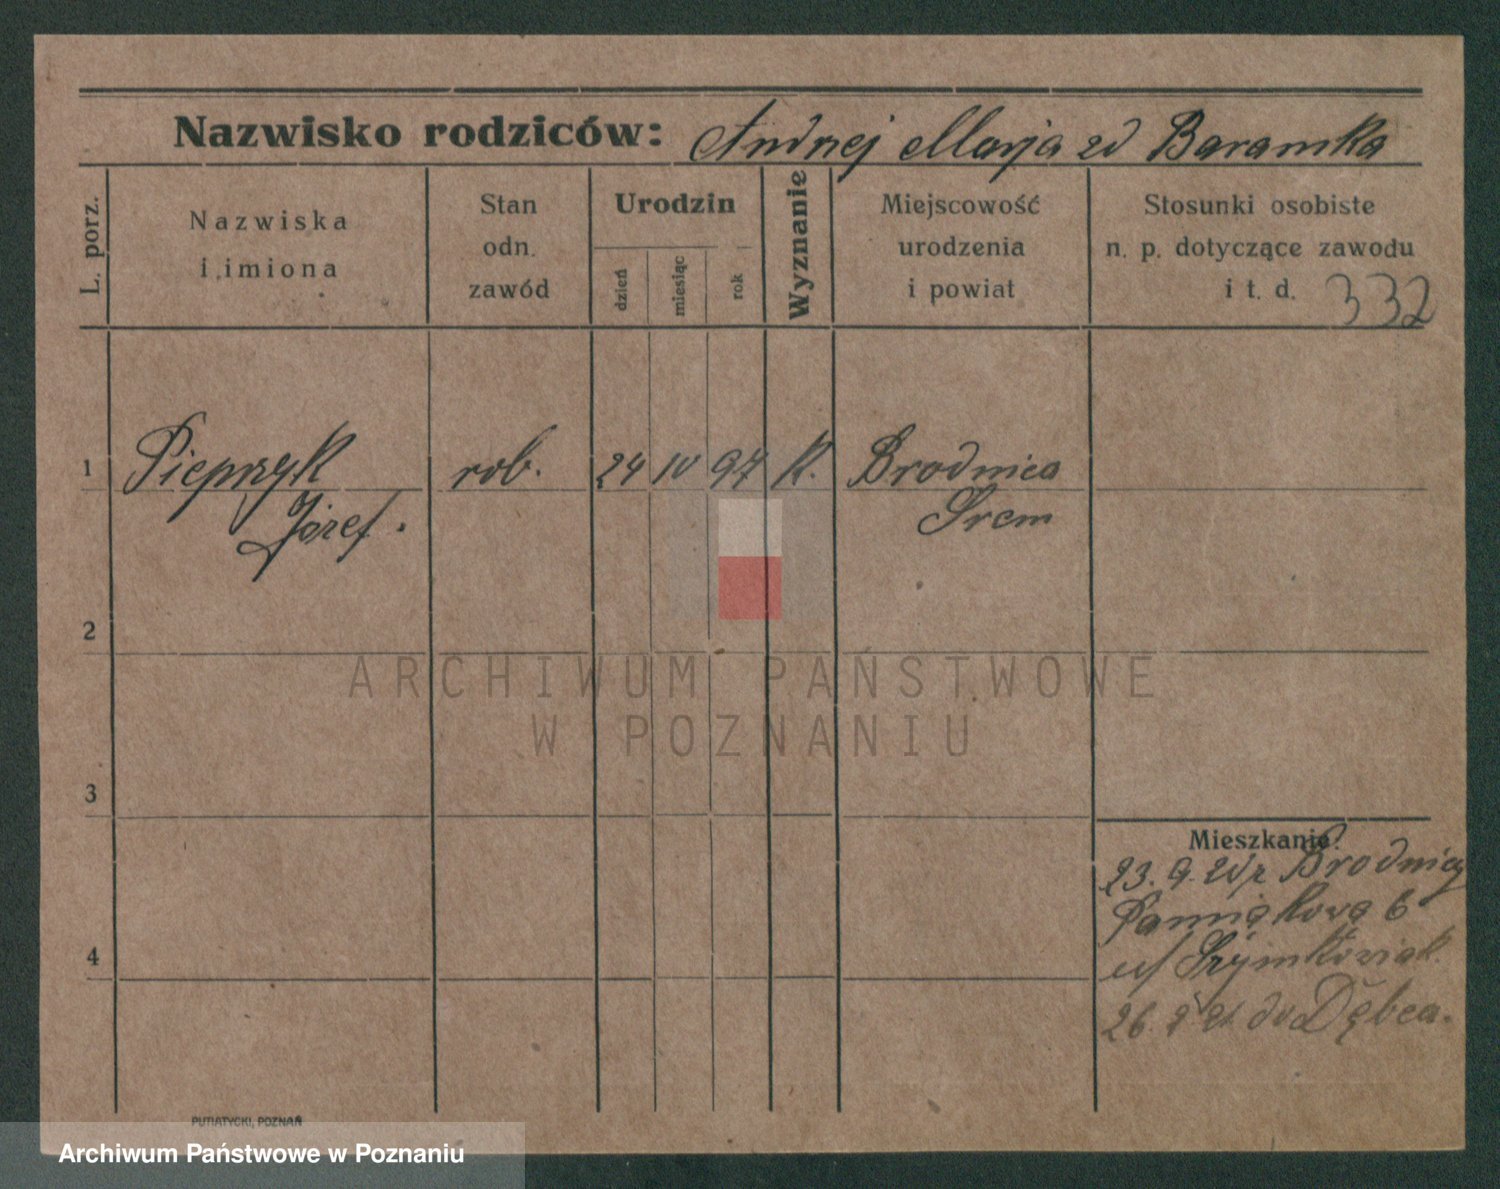 Nazwisko rodziców: Andrzej Marja zd Baramka
L. porz.
Nazwiska
i imiona
Stan
odn.
zawód
Urodzin
dzień
miesiąc
rok
Wyznanie
Miejscowość
urodzenia
i powiat
Stosunki osobiste
n. p. dotyczące zawodu
i t. d. 332
1 Pieprzyk rob. 24 10 97 K. Brodnica
Józef. Srem
2
3
4
Mieszkanie:
23. 9. z Brodnicy
6
Szymkowiak.
26. do Dębca.
PUTIATYCKI, POZNAŃ
ARCHIWUM PAŃSTWOWE
W POZNANIU
Archiwum Państwowe w Poznaniu